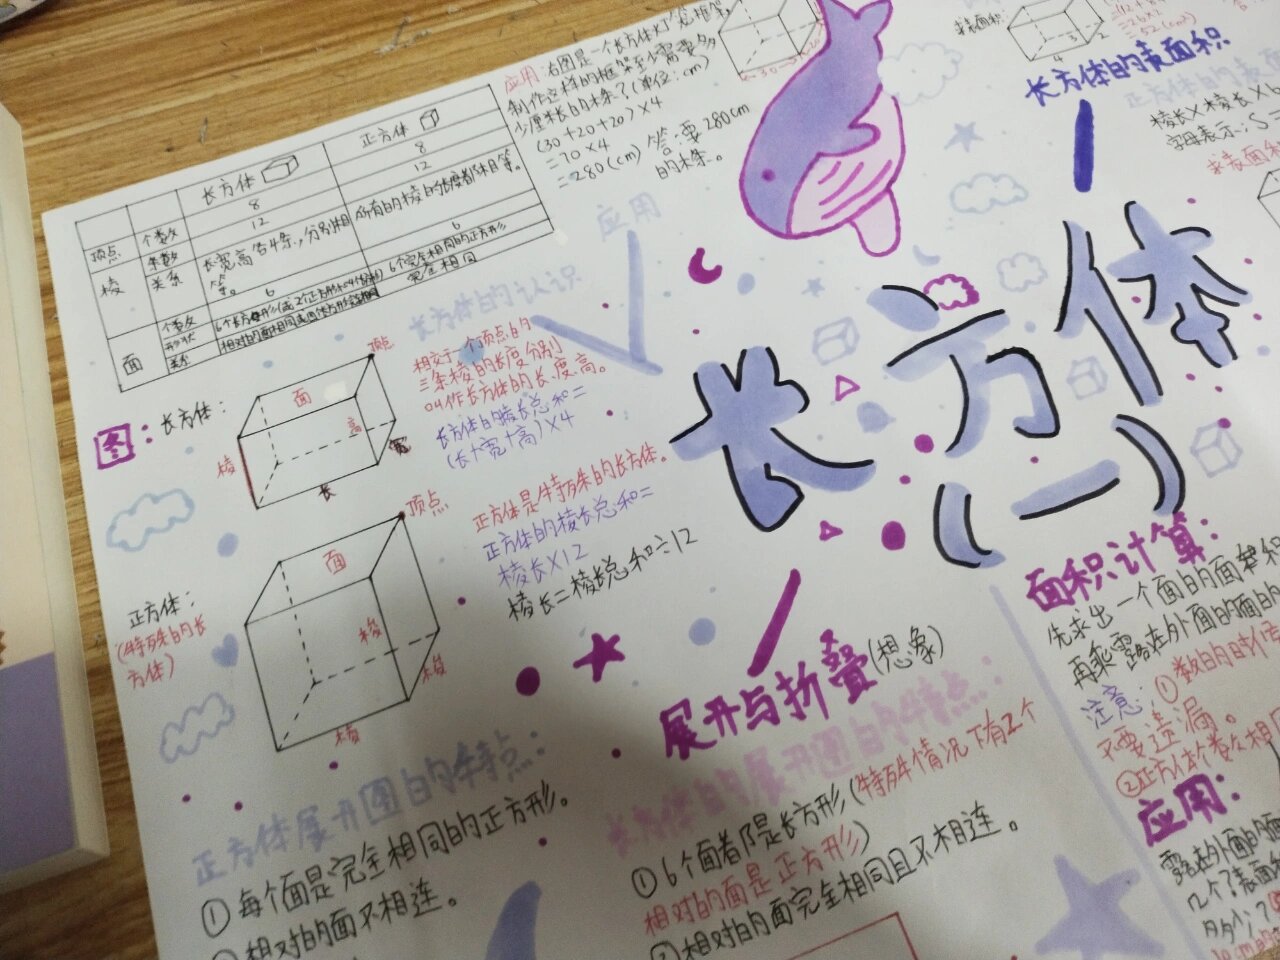 长方体
正方体
顶点
个数
8
8
棱
条数
12
12
关系
长宽高各4条,分别相等。
所有的棱的长度都相等。
面
个数
6
6
形状
6个完全相同的正方形
关系
完全相同
应用:右图是一个长方体灯笼框架,
制作这样的框架至少需要多
少厘米长的木条?(单位:cm)
(30+20+20)×4
=70×4
=280(cm) 答:要280cm
的木条。
应用
长方体的认识
相交于一个顶点的
三条棱的长度分别
叫作长方体的长、宽、高。
长方体的棱长总和=
(长+宽+高)×4
图:长方体:
顶点
面
高
棱
宽
长
正方体是特殊的长方体。
正方体的棱长总和=
棱长×12
棱长=棱长总和÷12
正方体:
(特殊的长
方体)
顶点
面
棱
棱
棱
长方体
(一)
求表面积:
4
3
2
=52(cm²)
长方体的表面积
正方体的表面
棱长×棱长×6
字母表示:S=
求表面积
展开与折叠(想象)
正方体展开图的特点:
①每个面是完全相同的正方形。
②相对的面不相连。
长方体的展开图的特点:
①6个面都是长方形(特殊情况下有2个
相对的面是正方形)
②相对的面完全相同且不相连。
面积计算:
先求出一个面的面积
再乘露在外面的面的
注意:①数的时候
不要遗漏。
②正方体个数
应用:
露在外面的面